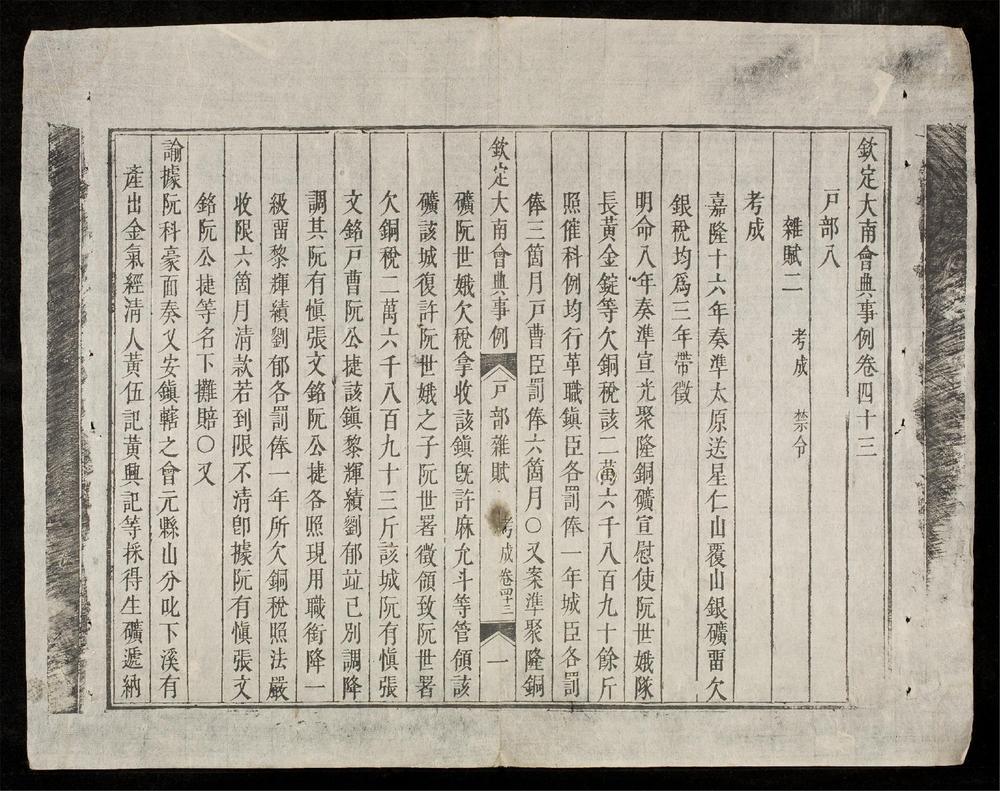 欽定大南會典事例卷四十三
戸部八
雜賦二 考成 禁令
考成
嘉隆十六年奏準太原送星仁山覆山銀礦畱欠
銀稅均爲三年帶徵
明命八年奏準宣光聚隆銅礦宣慰使阮世娥隊
長黃金錠等欠銅稅該二萬六千八百九十餘斤
照催科例均行革職鎭臣各罰俸一年城臣各罰
俸三箇月戸曹臣罰俸六箇月〇又案準聚隆銅
欽定大南會典事例 戸部雜賦 考成 卷四十三 一
礦阮世娥欠稅拿收該鎭旣許麻允斗等管領該
礦該城復許阮世娥之子阮世署徵領致阮世署
欠銅稅二萬六千八百九十三斤該城阮有愼張
文銘戸曹阮公捷該鎭黎輝績劉郁竝已別調降
調其阮有愼張文銘阮公捷各照現用職銜降一
級畱黎輝績劉郁各罰俸一年所欠銅稅照法嚴
收限六箇月清款若到限不清卽據阮有愼張文
銘阮公捷等名下攤賠〇又
諭據阮科豪面奏乂安鎭轄之會元縣山分叱下溪有
產出金氣經清人黃伍記黃興記等採得生礦遞納